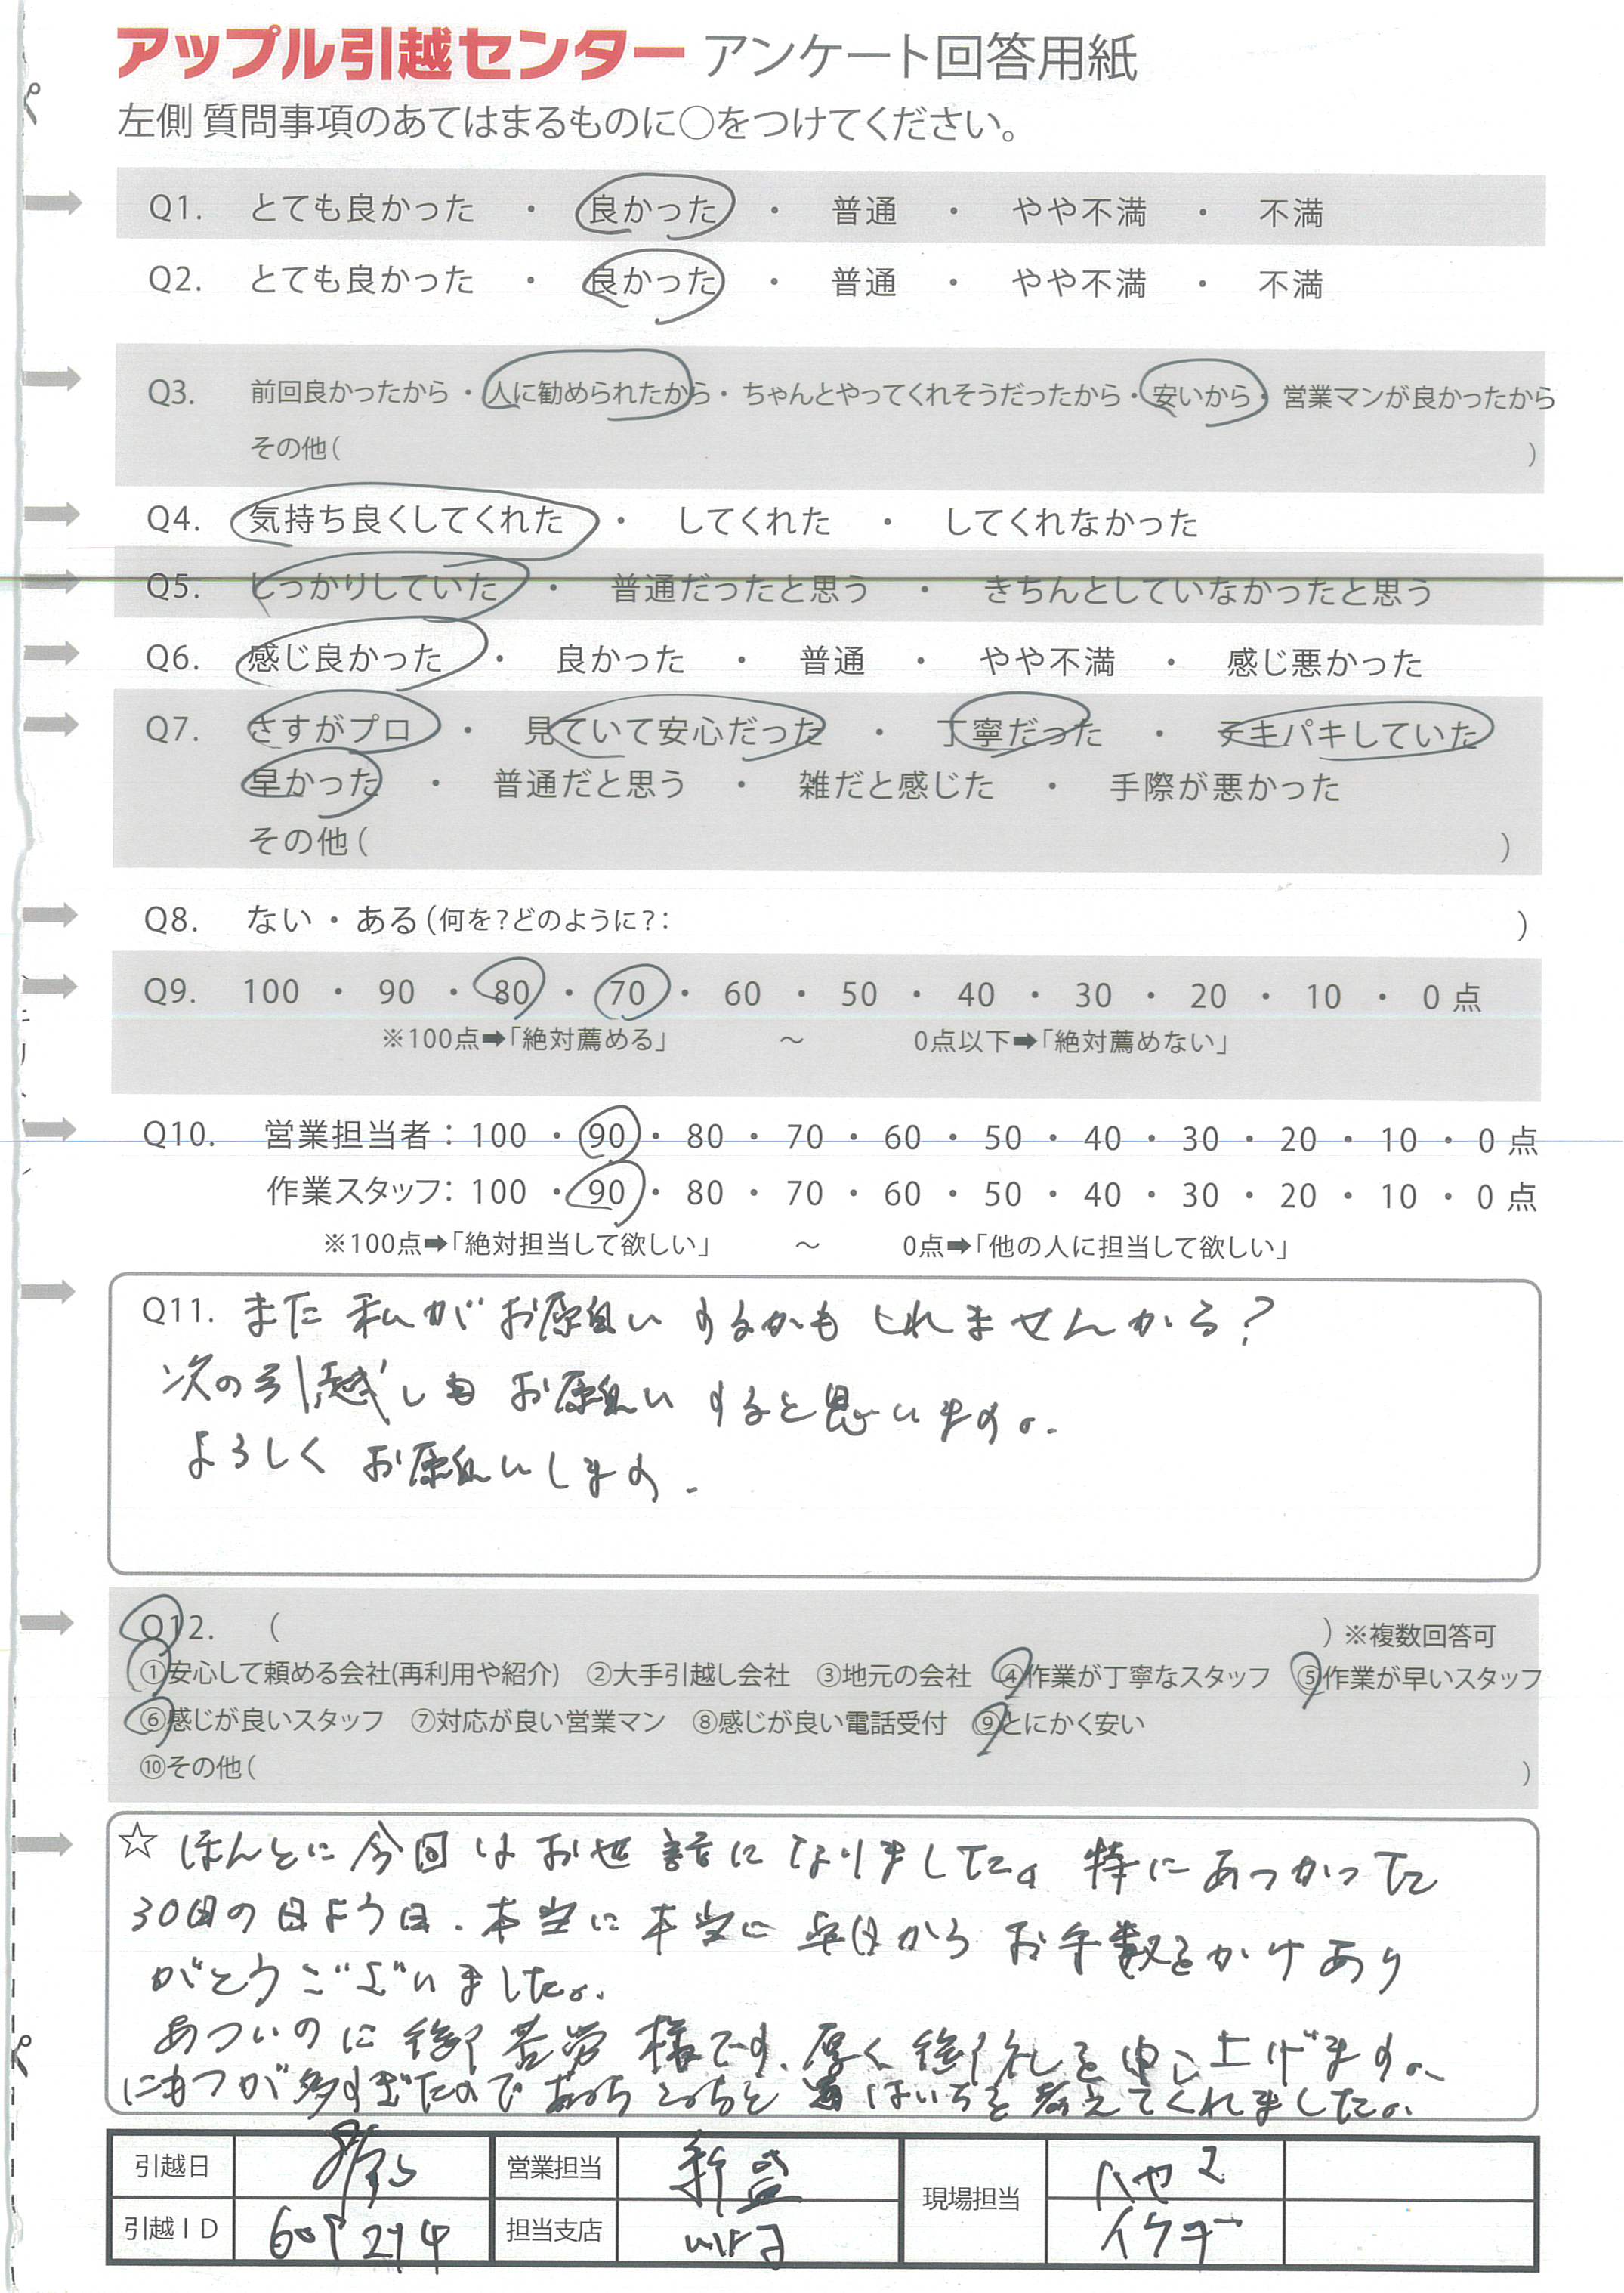 アップル引越センター アンケート回答用紙
左側 質問事項のあてはまるものに○をつけてください。
Q1. とても良かった ・ 良かった ・ 普通 ・ やや不満 ・ 不満
Q2. とても良かった ・ 良かった ・ 普通 ・ やや不満 ・ 不満
Q3. 前回良かったから・人に勧められたから・ちゃんとやってくれそうだったから・安いから・営業マンが良かったから
その他( )
Q4. 気持ち良くしてくれた ・ してくれた ・ してくれなかった
Q5. しっかりしていた ・ 普通だったと思う ・ きちんとしていなかったと思う
Q6. 感じ良かった ・ 良かった ・ 普通 ・ やや不満 ・ 感じ悪かった
Q7. さすがプロ ・ 見ていて安心だった ・ 丁寧だった ・ テキパキしていた
早かった ・ 普通だと思う ・ 雑だと感じた ・ 手際が悪かった
その他( )
Q8. ない ・ ある(何を?どのように?: )
Q9. 100 ・ 90 ・ 80 ・ 70 ・ 60 ・ 50 ・ 40 ・ 30 ・ 20 ・ 10 ・ 0 点
※100点➡「絶対薦める」 ～ 0点以下➡「絶対薦めない」
Q10. 営業担当者：100 ・ 90 ・ 80 ・ 70 ・ 60 ・ 50 ・ 40 ・ 30 ・ 20 ・ 10 ・ 0 点
作業スタッフ：100 ・ 90 ・ 80 ・ 70 ・ 60 ・ 50 ・ 40 ・ 30 ・ 20 ・ 10 ・ 0 点
※100点➡「絶対担当して欲しい」 ～ 0点➡「他の人に担当して欲しい」
Q11. また 私が お願い するかも しれませんから?
次の引越しも お願い すると思います。
よろしく お願いします.
Q12. ( ) ※複数回答可
①安心して頼める会社(再利用や紹介) ②大手引越し会社 ③地元の会社 ④作業が丁寧なスタッフ ⑤作業が早いスタッフ
⑥感じが良いスタッフ ⑦対応が良い営業マン ⑧感じが良い電話受付 ⑨とにかく安い
⑩その他( )
☆ ほんとに 今回は お世話に なりました。特に あつかった
30日の日よう日. 本当に 本当に からお手数をかけ あり
がとうございました。
あついのに 御苦労様です、厚く 御礼を 申し上げます。
にもつが多すぎたので あちらこちらと はいちを 考えてくれました。
引越日 8/30 営業担当 新盛 現場担当 ハヤマ
引越ID 609274 担当支店 イケダ